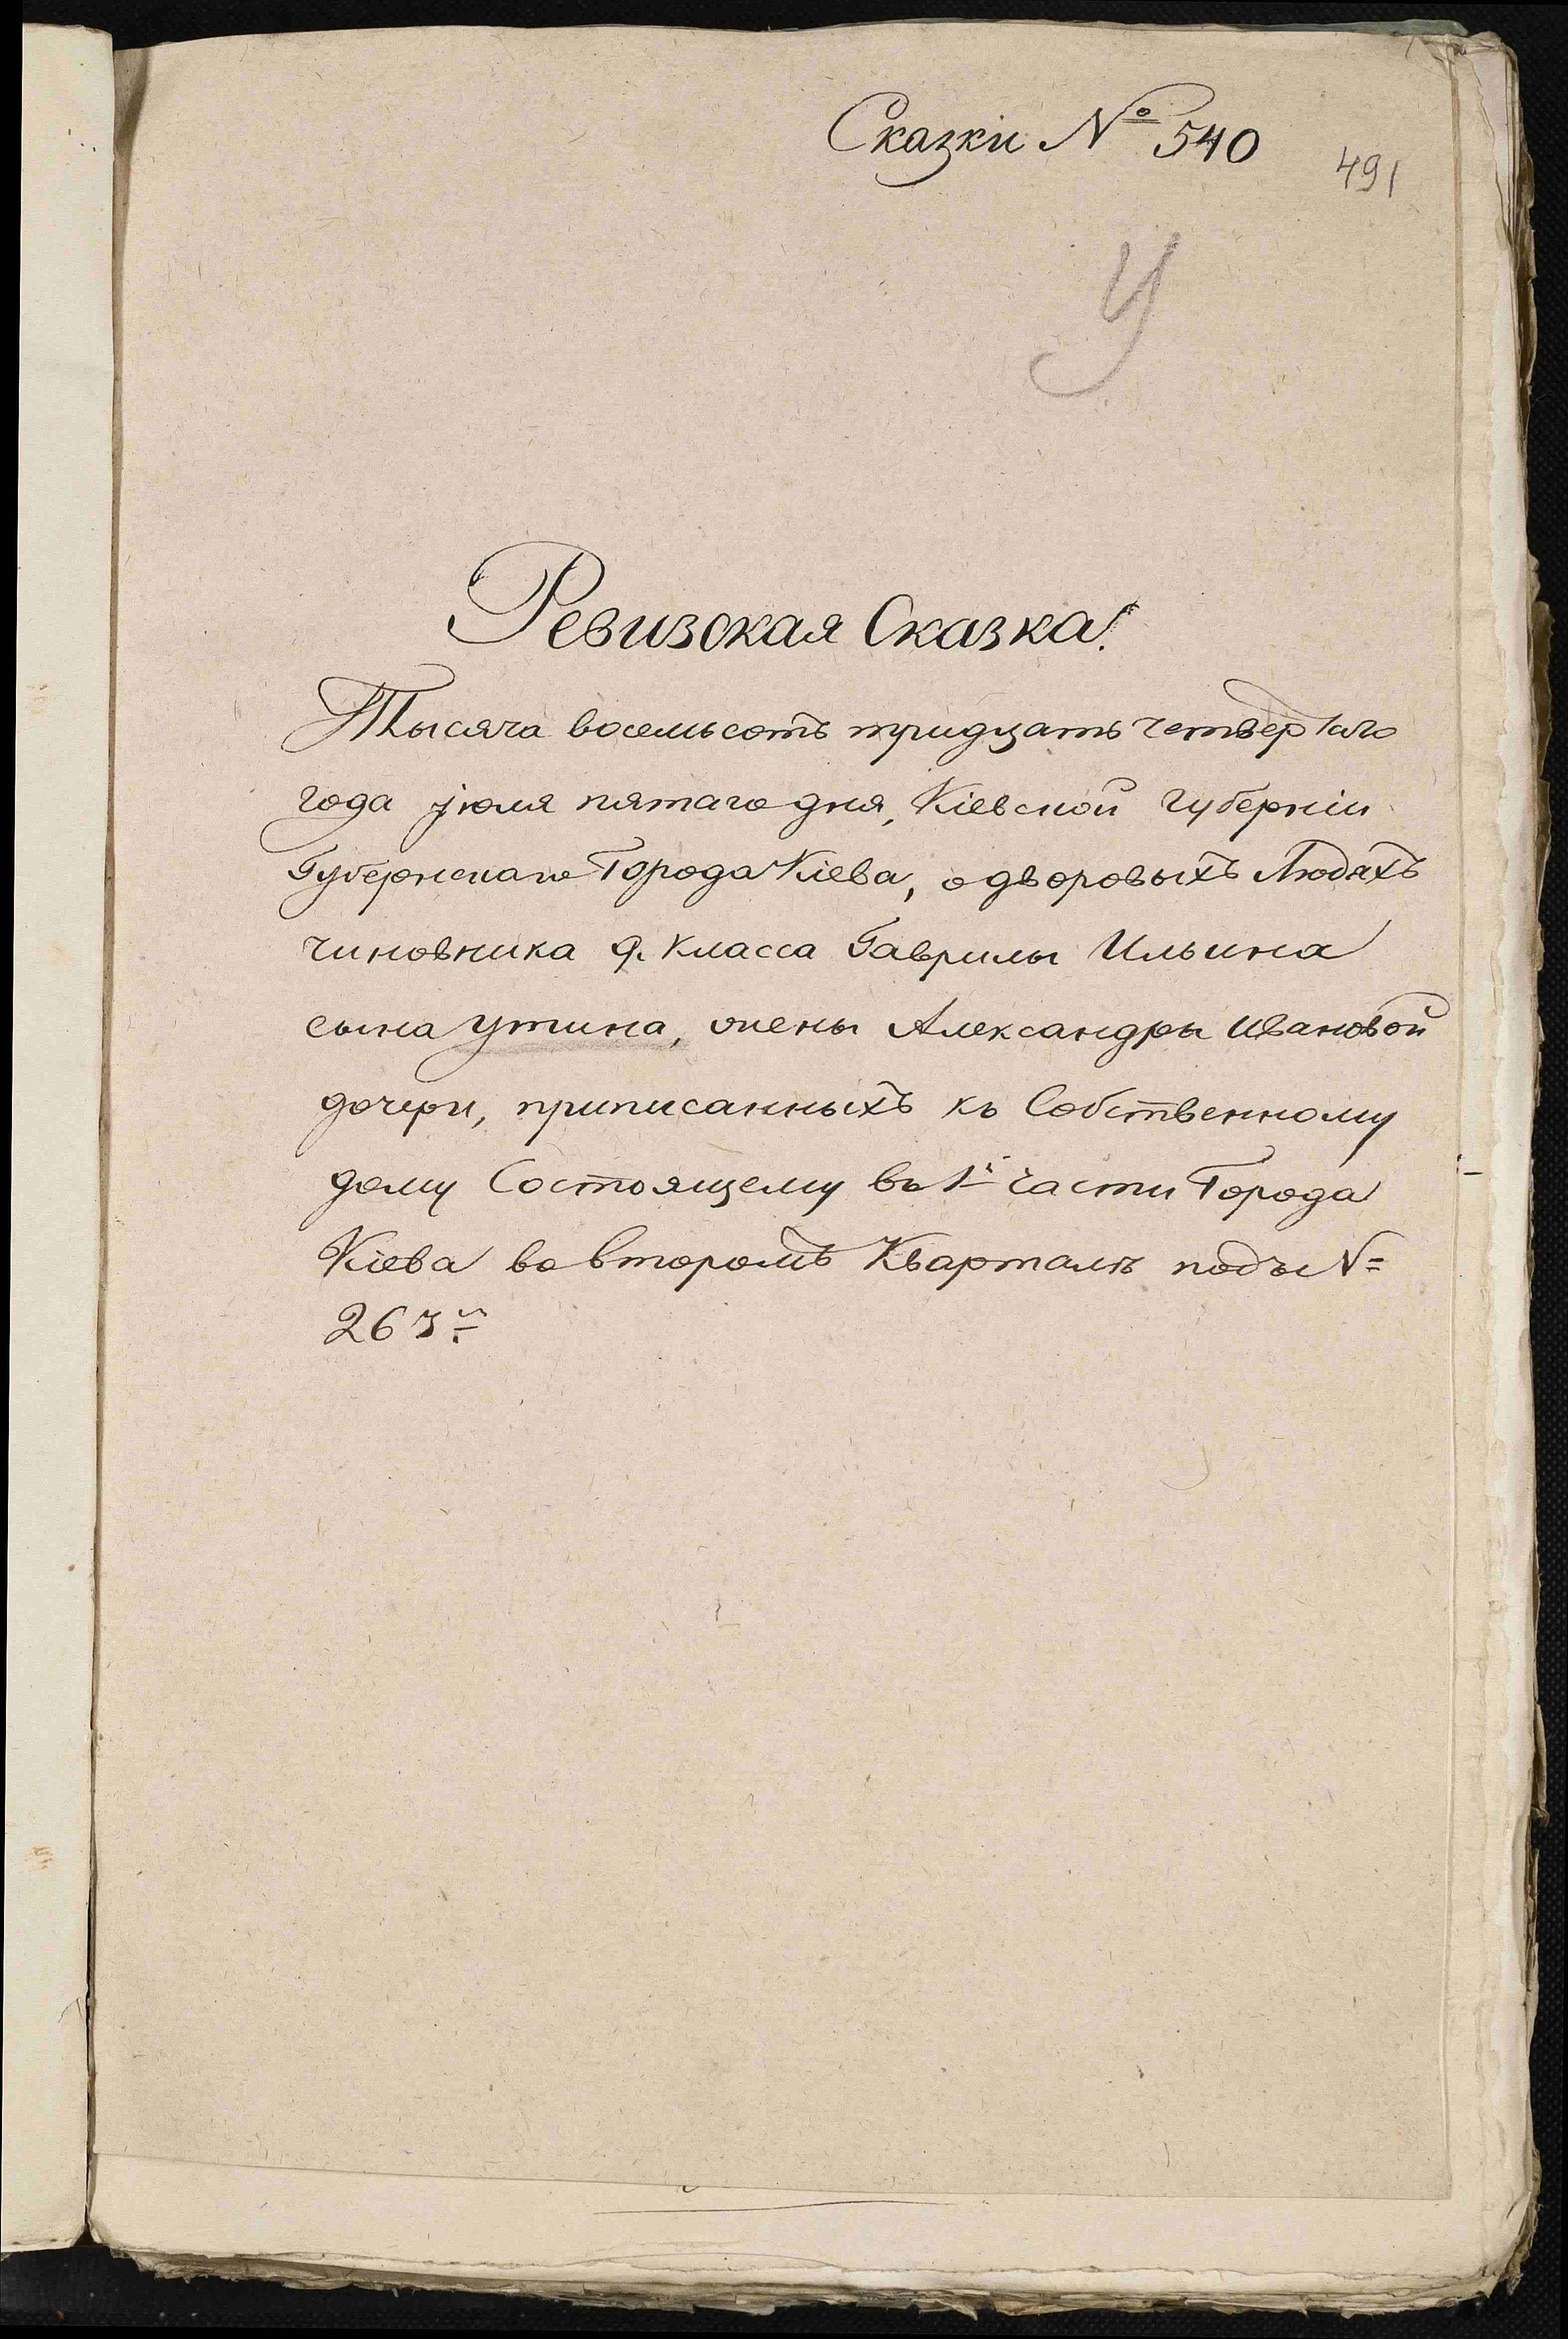 Сказки № 540
491
У
Ревизская Сказка.
Тысяча восемьсотъ тридцать четвертаго
года іюля пятаго дня, Кіевской губерніи
Губернскаго Города Кіева, о дворовыхъ Людяхъ
чиновника 9. класса Гаврилы Ильина
сына Утина, жены Александры Ивановой
дочери, приписанныхъ къ Собственному
дому Состоящему въ 1й части Города
Кіева во второмъ Кварталѣ подъ №